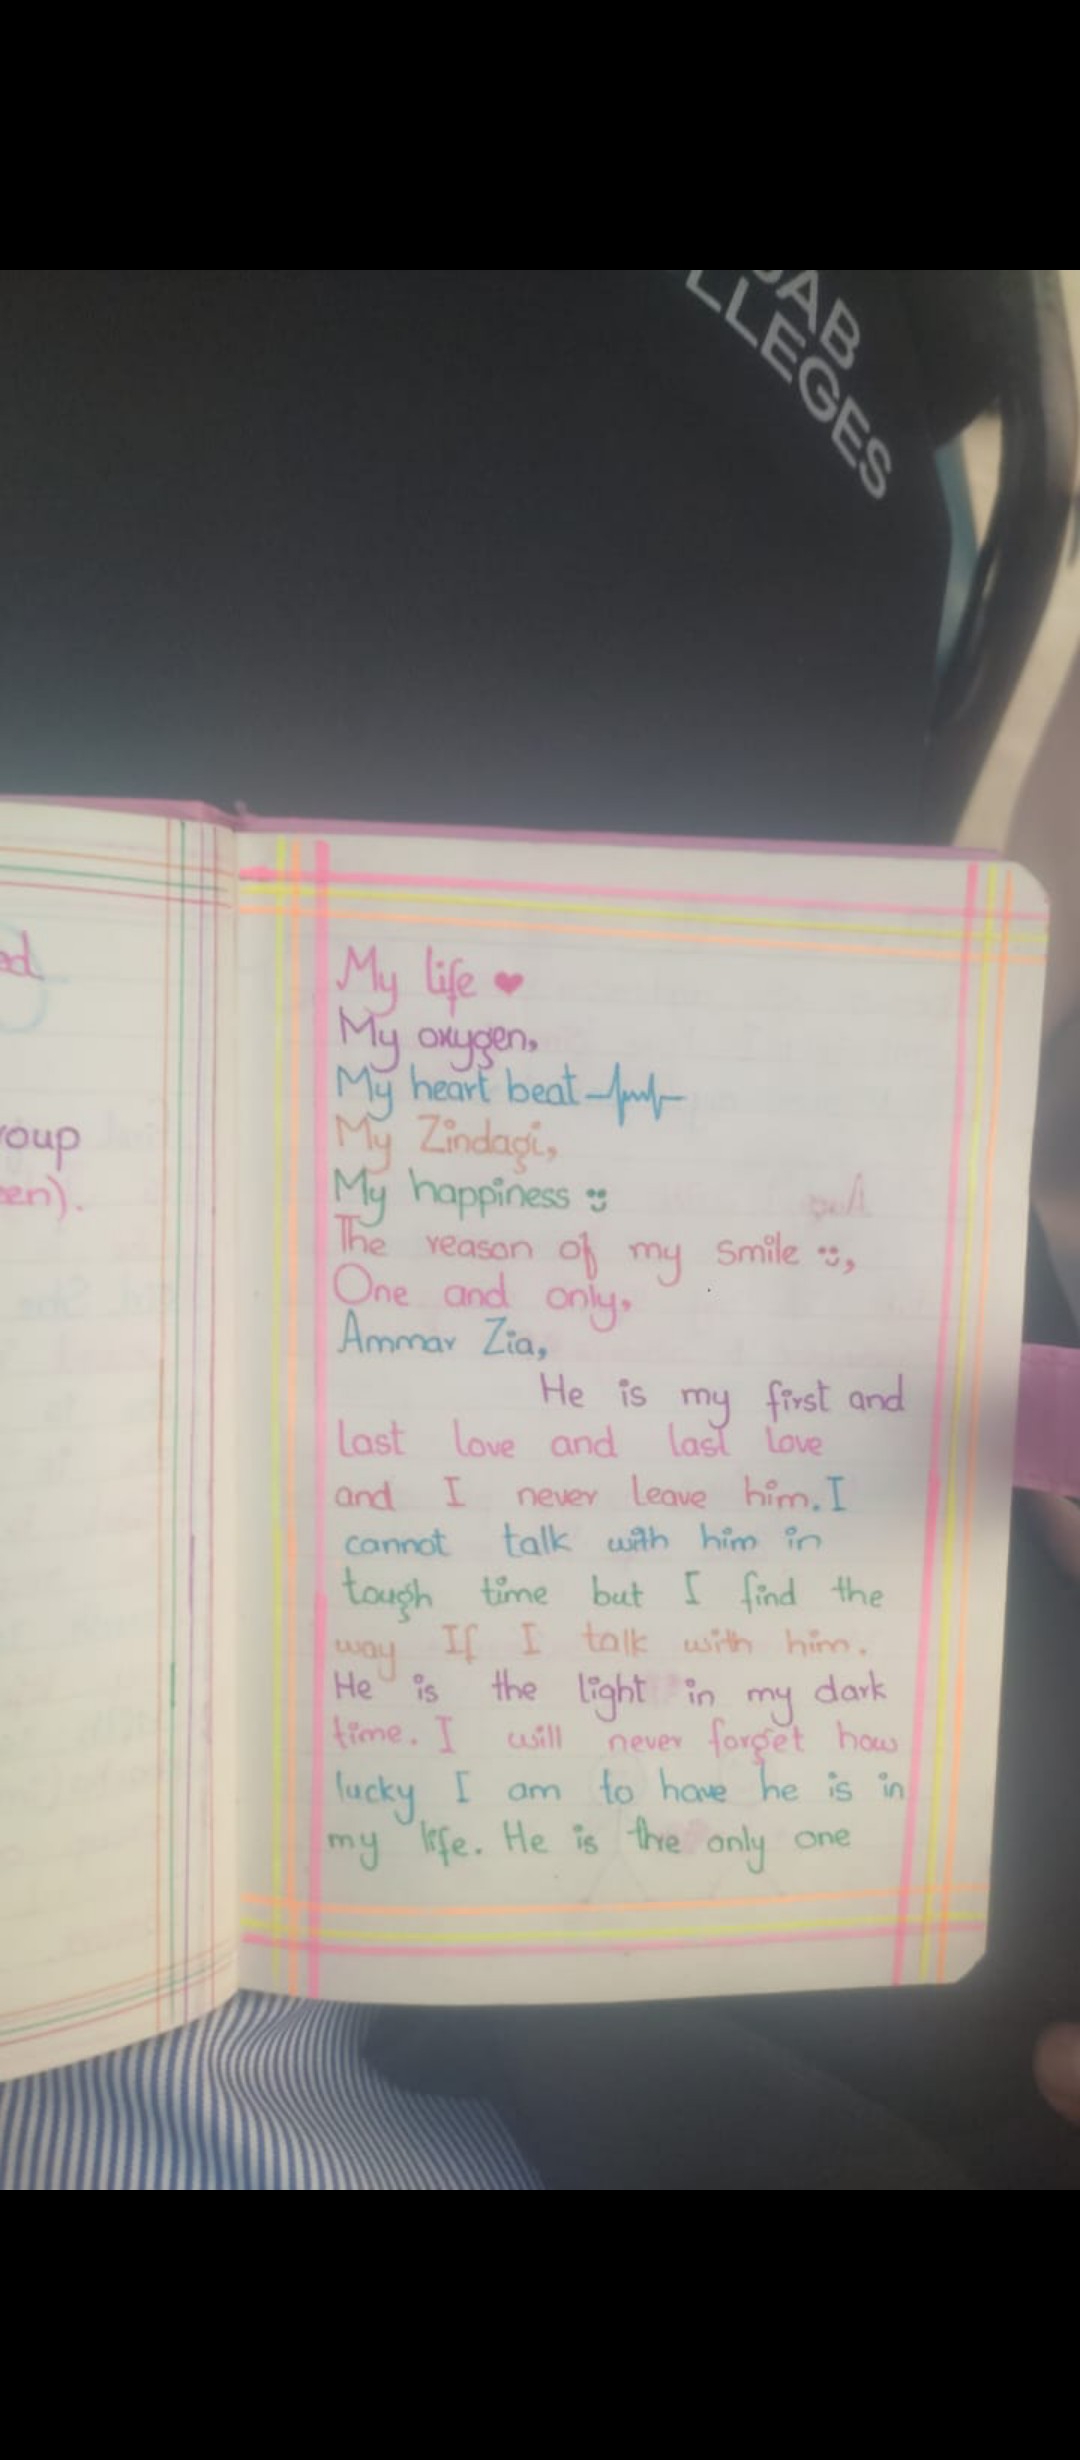 JAB
LLEGES
ed
roup
een).
My life ♥
My oxygen,
My heart beat
My Zindagi,
My happiness :)
The reason of my smile :),
One and only,
Ammar Zia,
He is my first and
last love and last love
and I never leave him. I
cannot talk with him in
tough time but I find the
way If I talk with him.
He is the light in my dark
time. I will never forget how
lucky I am to have he is in
my life. He is the only one